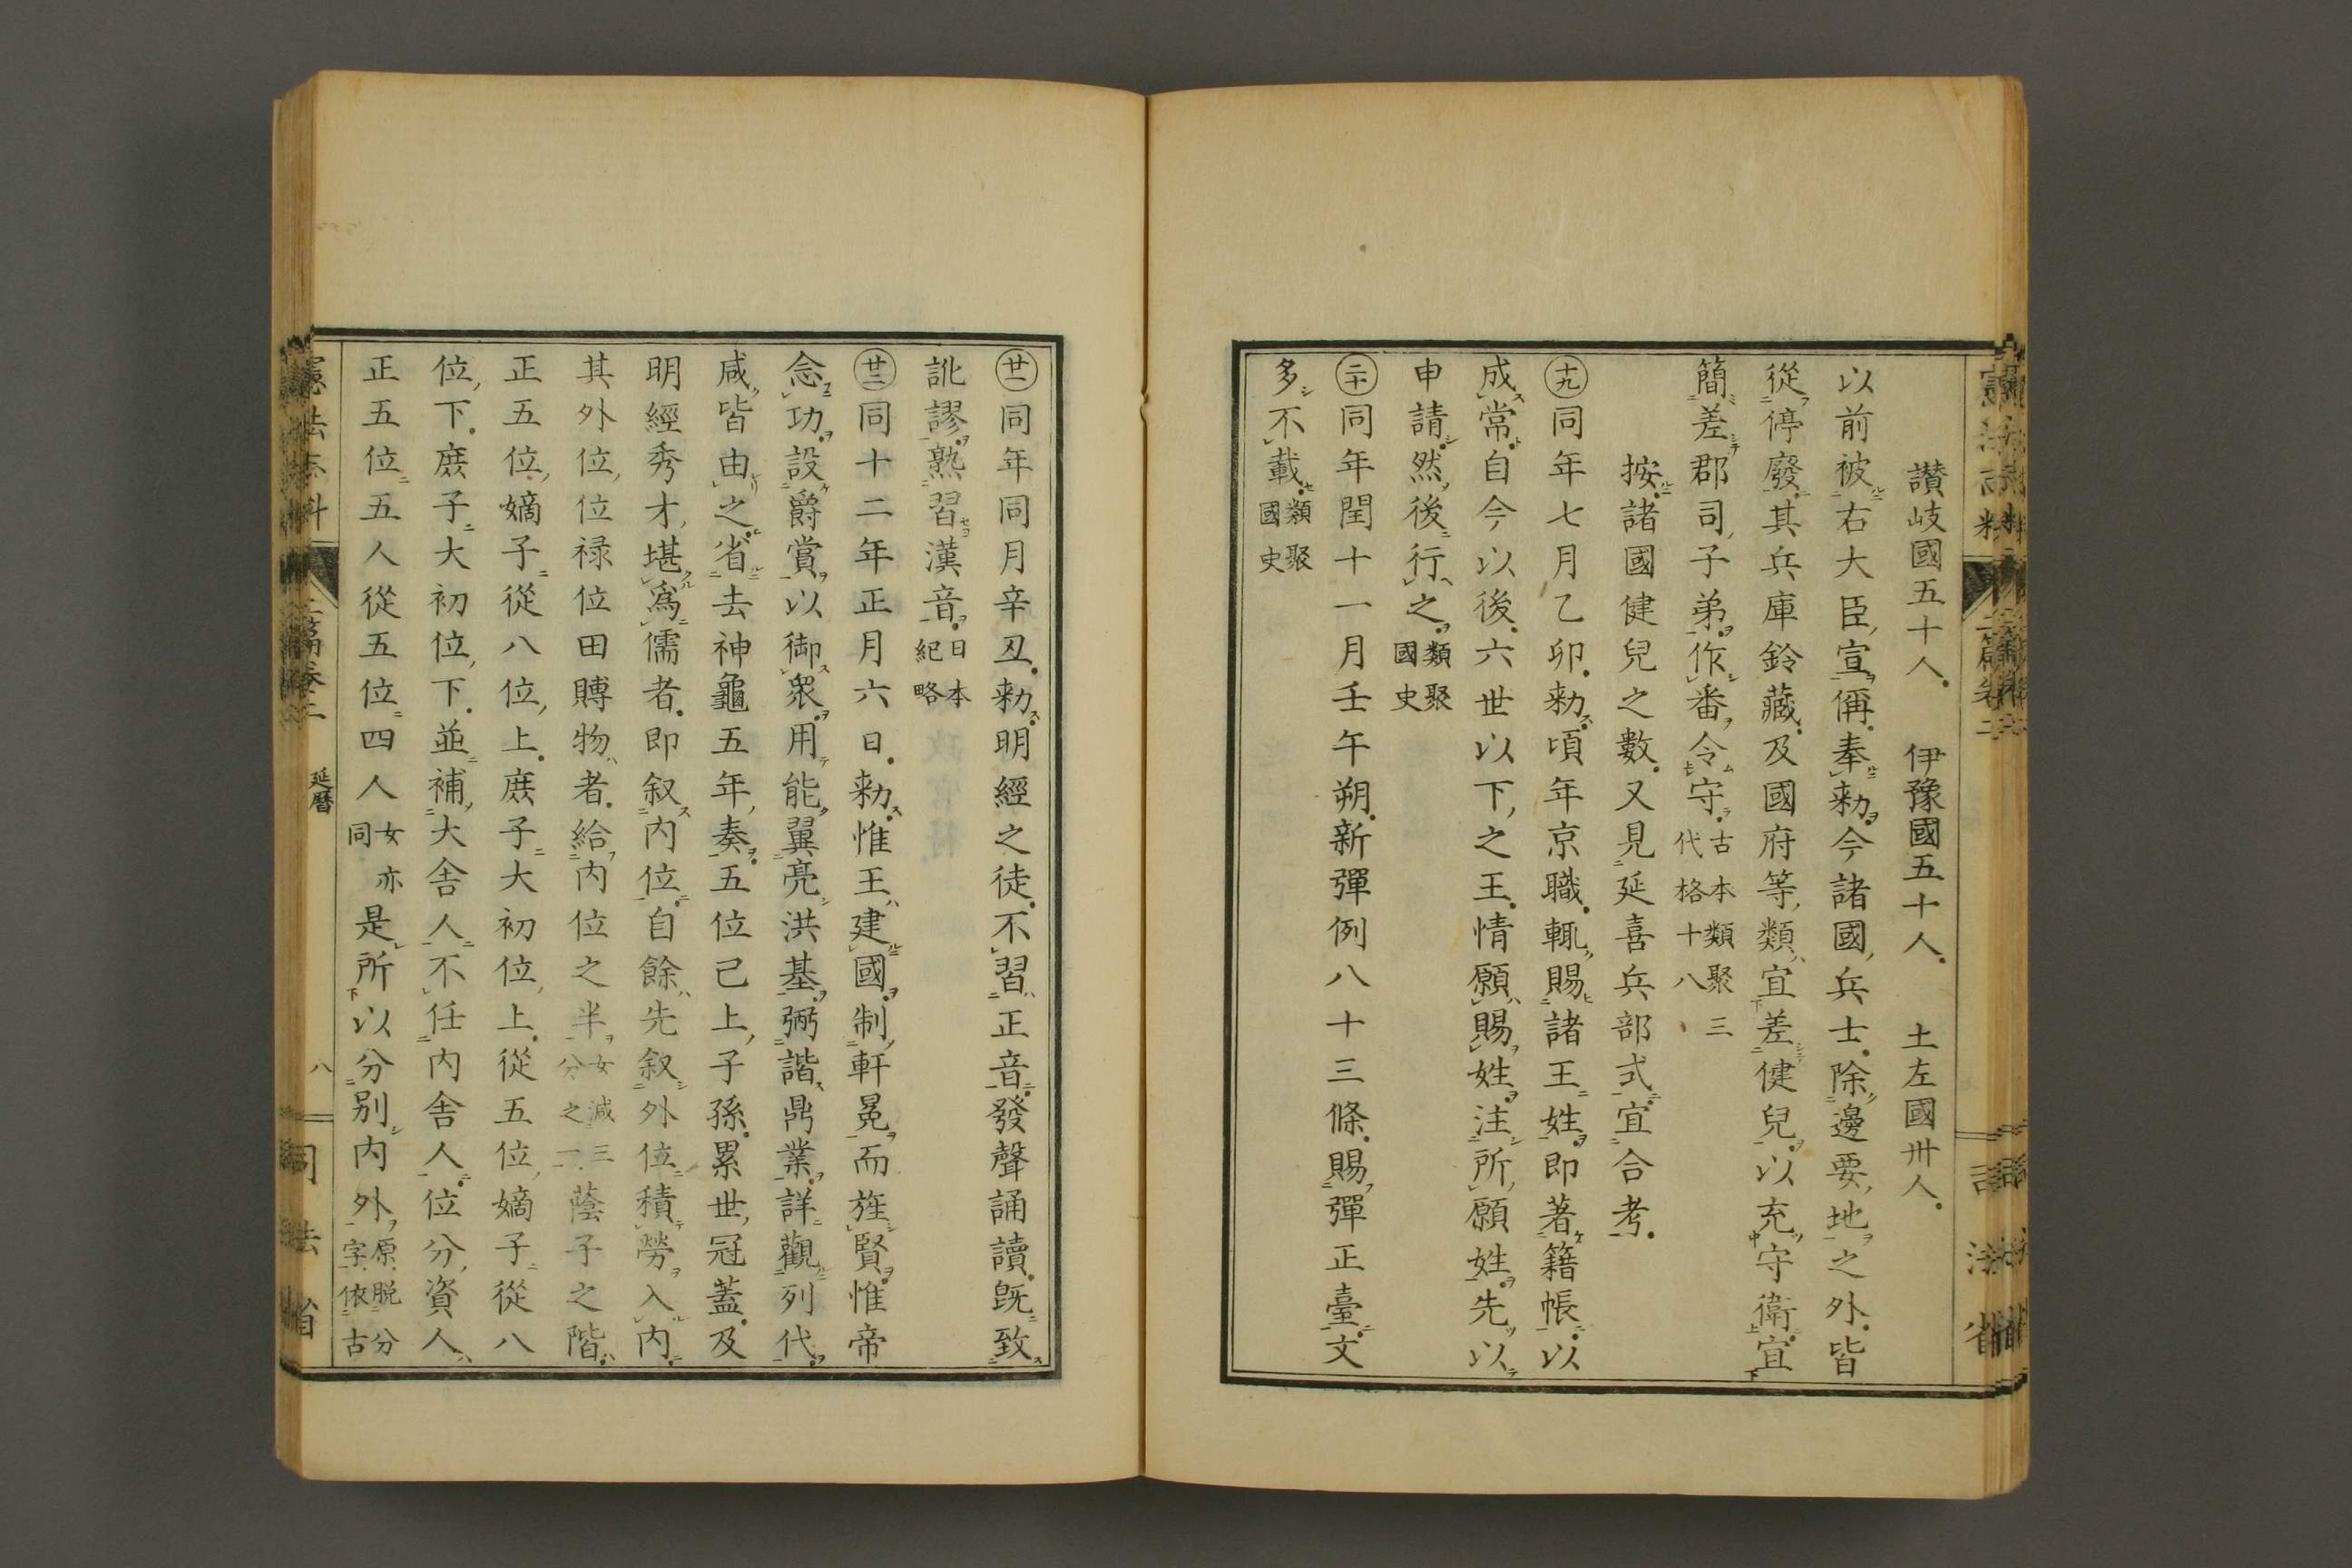 讃岐國五十人 伊豫國五十人 土左國卅人
以前被右大臣宣偁奉勅今諸國兵士除邊要地之外皆
從停廢其兵庫鈴藏及國府等類宜差健兒以充守衛宜
簡差郡司子弟作番令守古本類聚三代格十八
按諸國健兒之數又見延喜兵部式宜合考
㊉九同年七月乙卯勅頃年京職輒賜諸王姓即著籍帳以
成常自今以後六世以下之王情願賜姓注所願姓先以
申請然後行之類聚國史
二十同年閏十一月壬午朔新彈例八十三條賜彈正臺文
多不載類聚國史
廿一同年同月辛丑勅明經之徒不習正音發聲誦讀既致
訛謬熟習漢音日本紀略
廿二同十二年正月六日勅惟王建國制軒冕而旌賢惟帝
念功設爵賞以御衆用能翼亮洪基弼諧鼎業詳觀列代
咸皆由之省去神龜五年奏五位己上子孫累世冠蓋及
明經秀才堪爲儒者即叙内位自餘先叙外位積勞入内
其外位位禄位田賻物者給内位之半女減三分之一蔭子之階
正五位嫡子從八位上庶子大初位上從五位嫡子從八
位下庶子大初位下並補大舎人不任内舎人位分資人
正五位五人從五位四人女亦同是所以分別内外原脱分字依古
憲法志料 二篇卷二 延暦 八 司法省